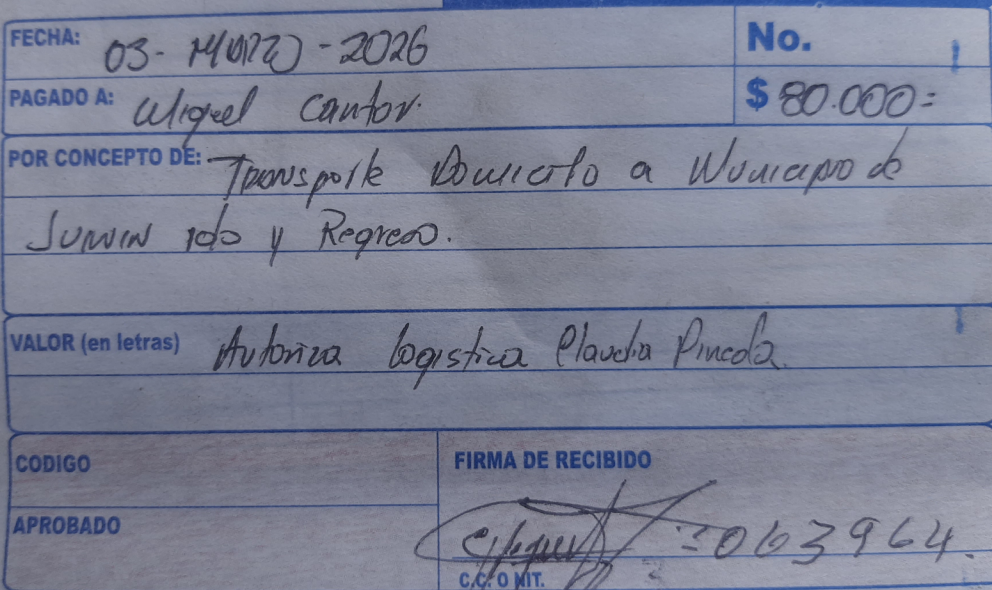 FECHA: 03 - Marzo - 2026
No.
PAGADO A: Miguel Cantor.
$ 80.000=
POR CONCEPTO DE: Transporte Domicilio a Municipio de
Junin ida y Regreso.
VALOR (en letras) Autoriza Logistica Claudia Pineda.
CODIGO
FIRMA DE RECIBIDO
APROBADO
3063964.
C.C. O NIT.